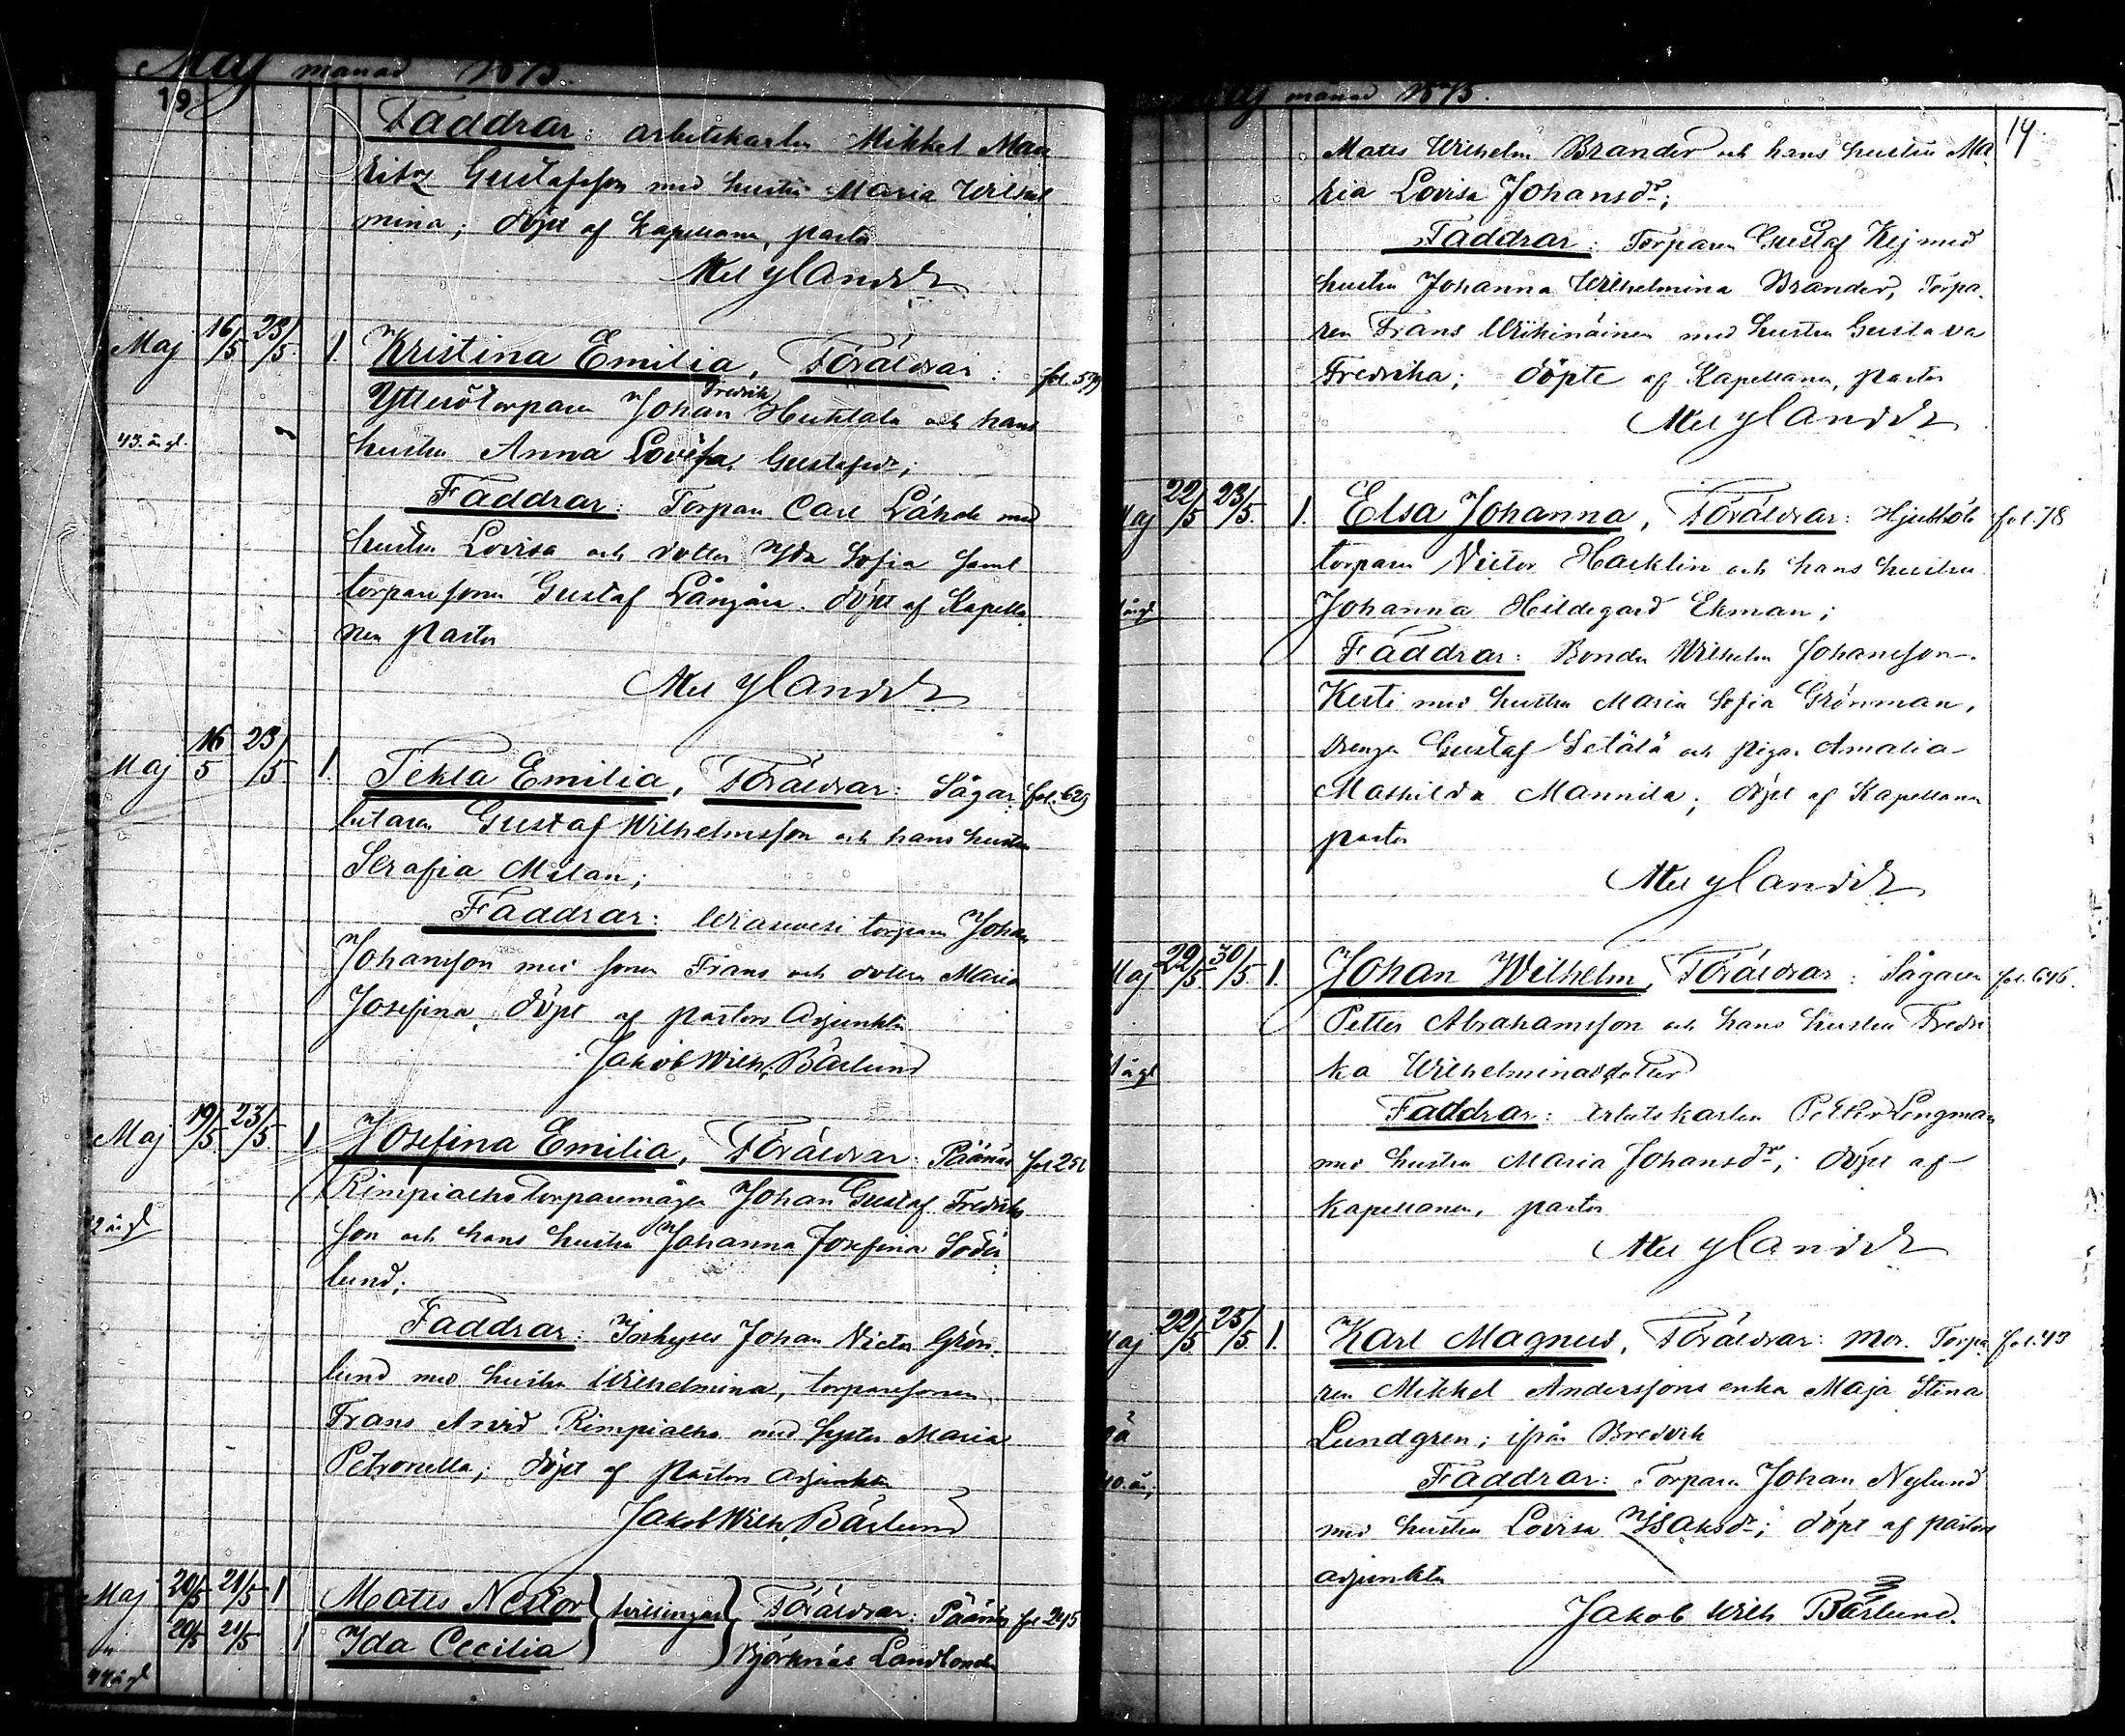 Maj månad 1873.
19
Faddrar: arbetskarlen Mikkel Mau
ritz Gustafsson med hustru Maria Wilhel
mina; döpt af Kapellanen, pastor
Axel Nylander
Maj 16/5 23/5. 1. Kristina Emilia, Föräldrar: fol. 579
Ytterötorparen Johan Fredrik Huhtala och hans
43 år gl. hustru Anna Lovisa Gustafsdr;
Faddrar: Torparen Carl Lähde med
hustru Lovisa och dotter Ida Sofia samt
torparesonen Gustaf Långåra. döpt af Kapella
nen pastor
Axel Nylander
Maj 16/5 23/5. 1. Tekla Emilia, Föräldrar: Sågar fol. 629
betaren Gustaf Wilhelmsson och hans hustru
Serafia Milan;
Faddrar: torparen Johan
Johansson med sonen Frans och dottern Maria
Josefina, döpt af pastors adjunkten
Jakob Wilh. Bärlund
Maj 19/5. 23/5. 1 Josefina Emilia, Föräldrar: Päänäs fol 251
Rimpialho Torparemågen Johan Gustaf Fredriks
2 år gl son och hans hustru Johanna Josefina Söder
lund;
Faddrar: Inhyses Johan Victor Grön
lund med hustru Wilhelmina, torparesonen
Frans Arvid Rimpialho med syster Maria
Petronella; döpt af pastors adjunkten
Jakob Wilh. Bärlund
Maj 20/5 21/5 1 Matts Nestor } tvillingar } Föräldrar: Päänäs fol 245
" 20/5 21/5 1 Ida Cecilia Björknäs Landbonden
44 år gl
Maj månad 1873.
14.
Matts Wilhelm Brander och hans hustru Ma
ria Lovisa Johansdr;
Faddrar: Torparen Gustaf Kej med
hustru Johanna Wilhelmina Brander, Torpa
ren Frans Wikinäinen med hustru Gustava
Fredrika; döpte af Kapellanen, pastor
Axel Nylander
Maj 22/5 23/5. 1. Elsa Johanna, Föräldrar: Hjulböle fol. 78
torparen Victor Hacklin och hans hustru
år gl Johanna Hildegard Ekman;
Faddrar: Bonden Wilhelm Johansson
Kesti med hustru Maria Sofia Grönman,
drengen Gustaf Setälä och pigan Amalia
Mathilda Mannila; döpt af Kapellanen
pastor
Axel Nylander
Maj 29/5. 30/5. 1. Johan Wilhelm, Föräldrar: Sågaren fol. 646.
Petter Abrahamsson och hans hustru Fredri
år gl ka Wilhelminadotter
Faddrar: Arbetskarlen Petter Lengman
med hustru Maria Johansdr; döpt af
kapellanen, pastor
Axel Nylander
Maj 22/5 25/5. 1. Karl Magnus, Föräldrar: mor. Torpa fol. 43
ren Mikkel Anderssons enka Maja Stina
Lundgren; ifrån Bredvik
40. år, Faddrar: Torparen Johan Nylund
med hustru Lovisa Isaksdr; döpt af pastors
adjunkten
Jakob Wilh Bärlund.